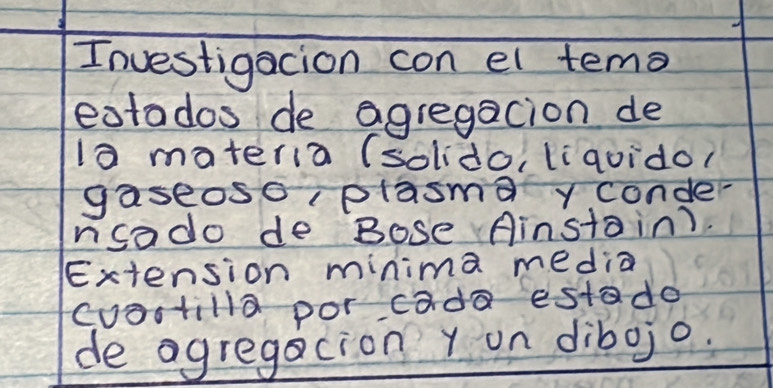 Investigacion con el tema
estados de agregacion de
la materia (solido, liquido,
gaseoso, plasma y conde-
nsado de Bose Ainstain).
Extension minima media
cuartilla por cada estado
de agregacion y un dibujo.